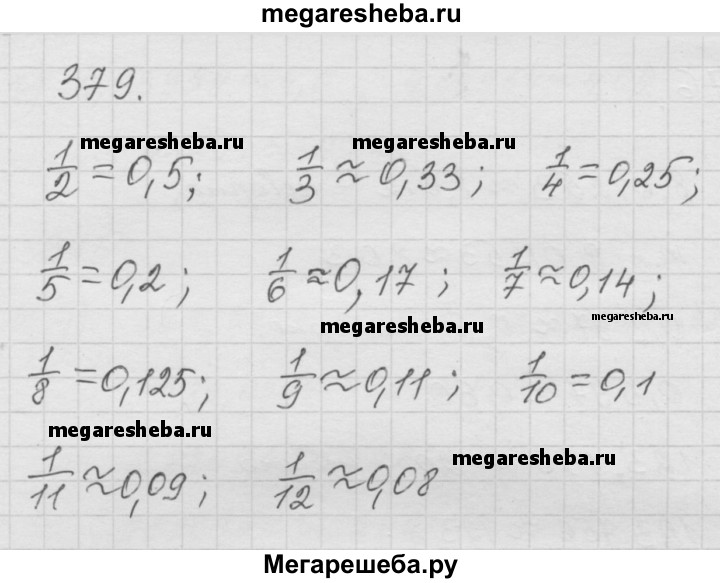 megaresheba.ru
379.
megaresheba.ru megaresheba.ru
1/2 = 0,5; 1/3 ≈ 0,33; 1/4 = 0,25;
1/5 = 0,2; 1/6 ≈ 0,17; 1/7 ≈ 0,14;
megaresheba.ru megaresheba.ru
1/8 = 0,125; 1/9 ≈ 0,11; 1/10 = 0,1
megaresheba.ru megaresheba.ru
1/11 ≈ 0,09; 1/12 ≈ 0,08
Мегарешеба.ру